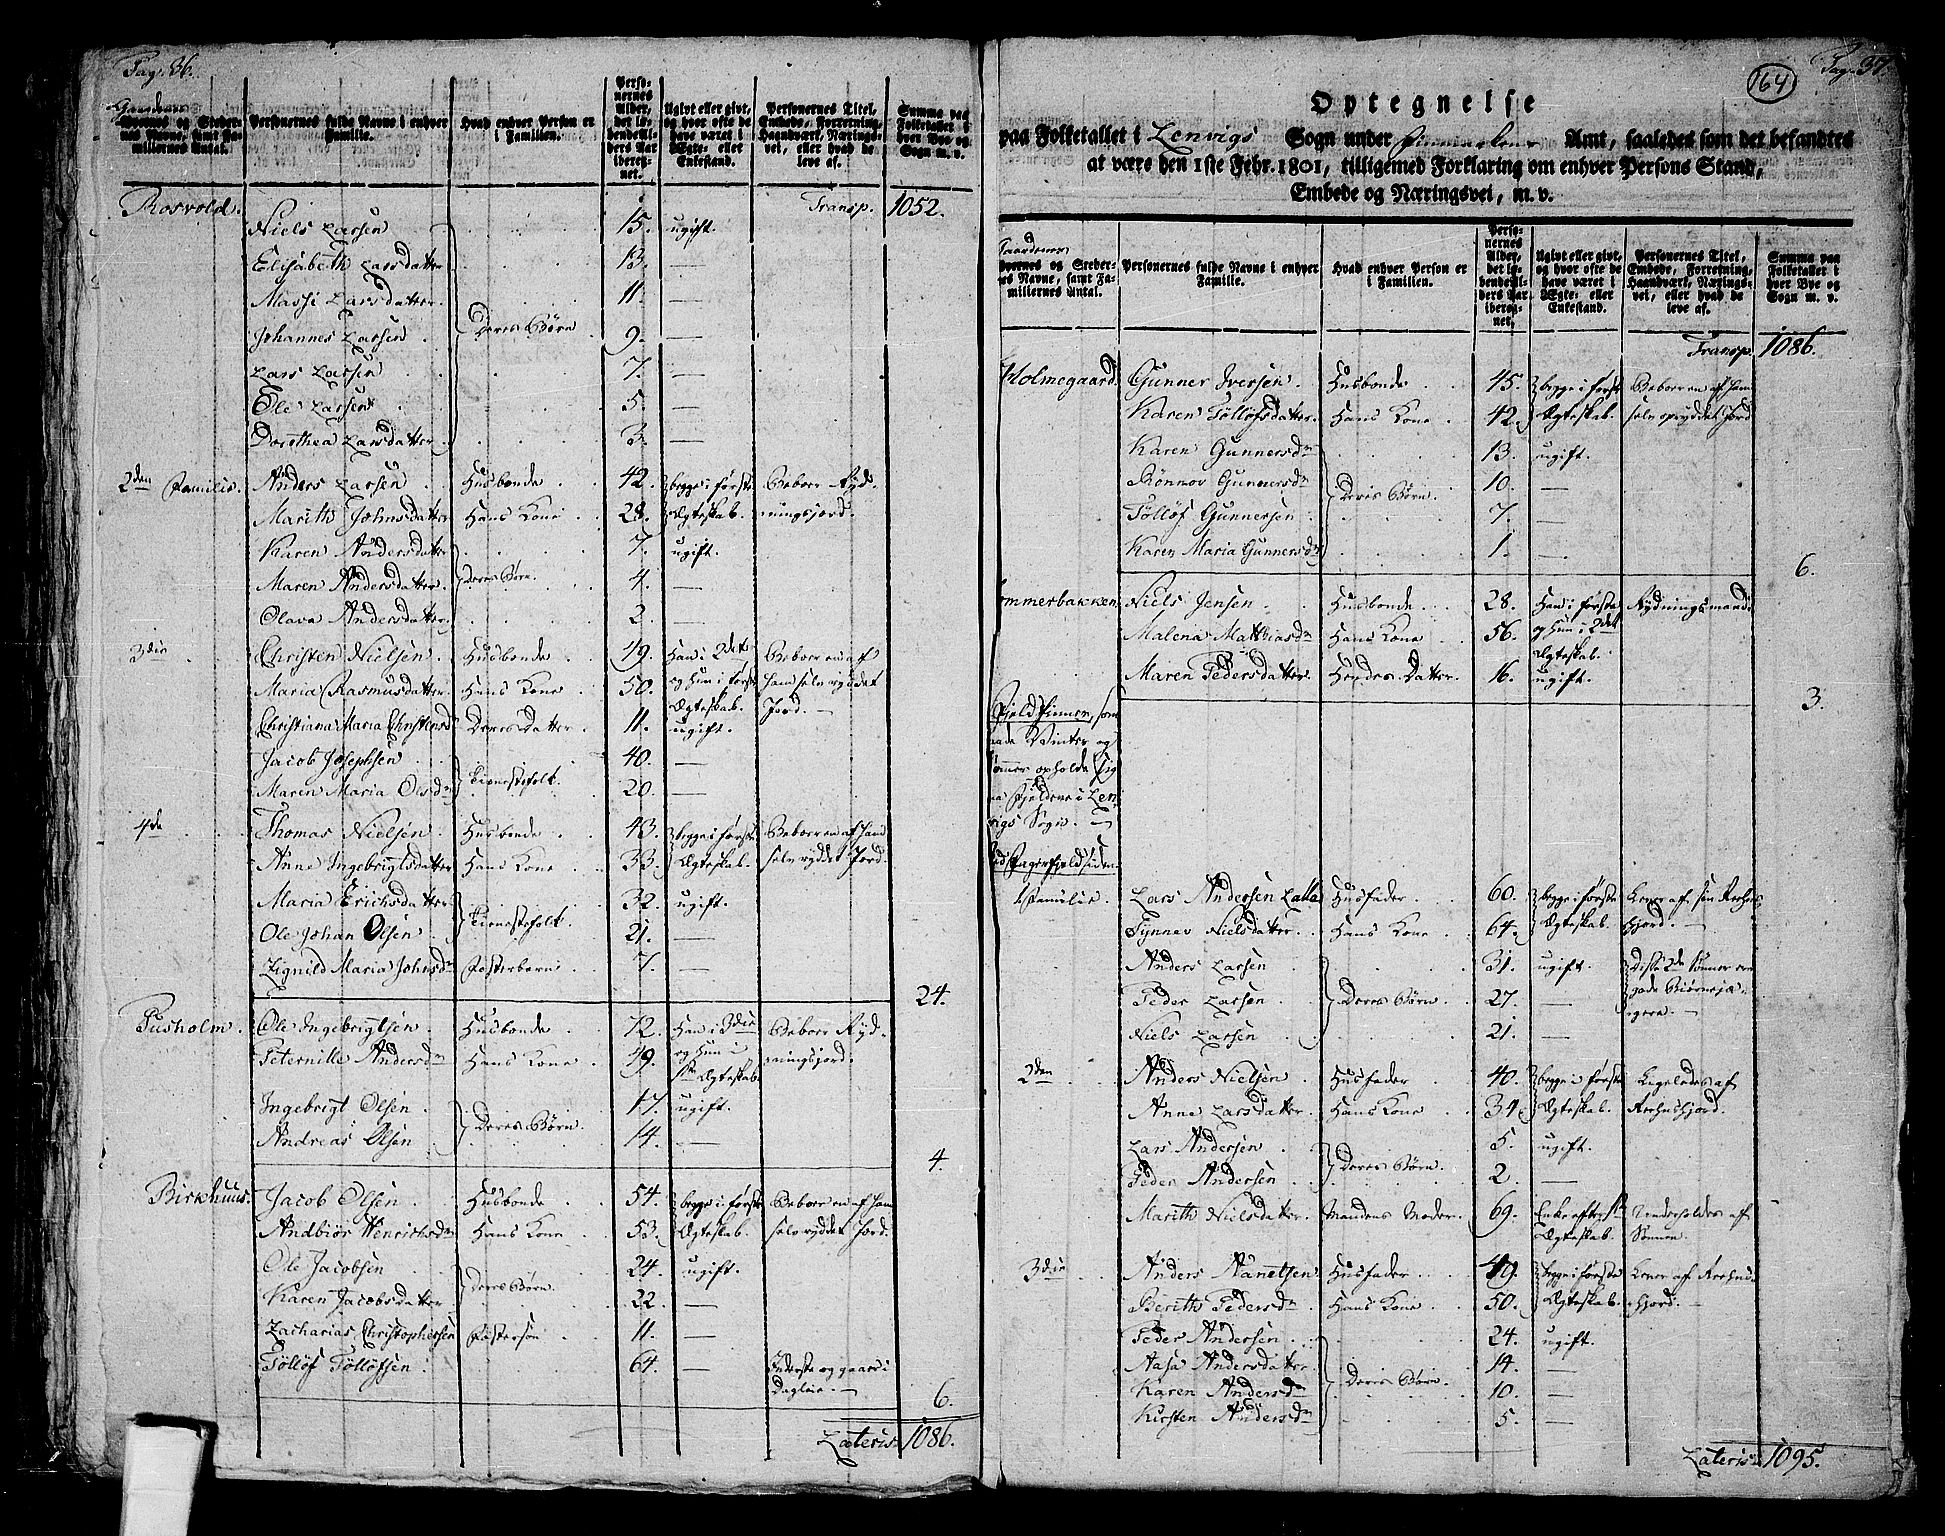 Pag. 36.
Gaardenes
Byernes og Steder-
nes Navne, samt Fa-
miliernes Antal.
Personernes fulde Navne i enhver
Familie.
Hvad enhver Person er
i Familien.
Perso-
nernes
Alder,
det lø-
bende Al-
ders Aar
ibereg-
net.
Ugivt eller givt,
og hvor ofte de
have været i
Ægte- eller
Enkestand.
Personernes Titel,
Embede, Forretning,
Haandværk, Nærings-
vei, eller hvad de
leve af.
Summa paa
Folketallet i
hver Bye og
Sogn m. v.
Transp. 1052.
Rosvold. Niels Larsen 15. ugift.
Elisabeth Larsdatter 13. —
Massi Larsdatter 11. —
Johannes Larsen Deres Børn 9. —
Lars Larsen 7. —
Ole Larsen 5. —
Dorothea Larsdatter 3. —
2den Familie. Anders Larsen Husbonde 42. begge i første Beboer Ryd-
Marith Johnsdatter Hans Kone 28. Ægteskab. ningsjord.
Karen Andersdatter 7. ugift.
Maren Andersdatter Deres Børn. 4. —
Olava Andersdatter 2. —
3die Christen Nielsen Husbonde 49. Han i 2det Beboer en af
Maria Rasmusdatter Hans Kone 50. og Hun i første ham selv ryddet
Ægteskab. Jord. —
Christiana Maria Christensd Deres Datter 11. ugift.
Jacob Josephsen 40. —
Maren Maria Olsdr Tienestefolk. 20. —
4de Thomas Nielsen Husbonde 43. begge i første Beboer en af ham
Anne Ingebrigtsdatter Hans Kone 33. Ægteskab. selv ryddet Jord.
Maria Erichsdatter 32. ugift.
Ole Johan Olsen Tienestefolk 21. —
Zignild Maria Johnsdr Fosterbarn 7. —
24.
Pusholm. Ole Ingebrigtsen Husbonde 72. Han i 3die Beboer Ryd-
Peternille Andersdr Hans Kone 49. og Hun i ningsjord.
1ste Ægteskab.
Ingebrigt Olsen 17. ugift.
Andreas Olsen Deres Børn 14. —
4.
Birkhuus. Jacob Olsen Husbonde 54. begge i første Beboer en af ham
Andbiør Henrichsdr Hans Kone 53. Ægteskab. selv ryddet Jord.
Ole Jacobsen 24. ugift.
Karen Jacobsdatter Deres Børn 22. —
Zacharias Christophersen Fostersøn 11. —
Tølløf Tølløfsen 64. — Inderste og gaaer i
Dagleie. —
6.
Lateris 1086.
164
Pag. 37.
Optegnelse
paa Folketallet i Lenvigs Sogn under Finmarkens Amt, saaledes som det befandtes
at være den 1ste Febr. 1801, tilligemed Forklaring om enhver Persons Stand,
Embede og Næringsvei, m. v.
Gaardenes
Byernes og Steder-
nes Navne, samt Fa-
miliernes Antal.
Personernes fulde Navne i enhver
Familie.
Hvad enhver Person er
i Familien.
Perso-
nernes
Alder,
det lø-
bende Al-
ders Aar
ibereg-
net.
Ugivt eller givt,
og hvor ofte de
have været i
Ægte- eller
Enkestand.
Personernes Titel,
Embede, Forretning,
Haandværk, Nærings-
vei, eller hvad de
leve af.
Summa paa
Folketallet i
hver Bye og
Sogn m. v.
Transp. 1086.
Holmegaard. Gunner Iversen Husbonde 45. begge i første Beboer en af ham
Karen Tølløfsdatter Hans Kone 42. Ægteskab. selv opryddet Jord
Karen Gunnersdr 13. ugift.
Rønnov Gunnersdr Deres Børn 10. —
Tølløf Gunnersen 7. —
Karen Maria Gunnersdr 1. —
6.
ommerbakken. Niels Jensen Husbonde 28. Han i første Rydningsmand.
Malena Matthiasdr Hans Kone 56. og Hun i 2det
Ægteskab.
Maren Pedersdatter Hendes Datter 16. ugift.
3.
Fjeldfinner, som
baade Vinter og
Sommer opholde sig
paa Fjeldene i Len-
vigs Sogn. —
1 Familie. Lars Andersen Husfader 60. begge i første Lever af sin Reens-
Synnev Nielsdatter Hans Kone 64. Ægteskab. hjord. —
Anders Larsen 31. ugift. Disse 2de Sønner ere
Peder Larsen Deres Børn 27. — gode Biørnejæ-
Niels Larsen 21. — gere. —
2den Anders Nielsen Husfader 40. begge i første Ligeledes af
Anne Larsdatter Hans Kone 31. Ægteskab. Reenshjord.
Lars Andersen 5. ugift.
Peder Andersen Deres Børn 2. —
Marith Nielsdatter Mandens Moder 69. Enke efter 1ste Underholdes af
Ægteskab. Sønnen.
3die Anders Nanetsen Husfader 49. begge i første Lever af Reens-
Berith Pedersdr Hans Kone 50. Ægteskab. hjord. —
Peder Andersen 24. ugift.
Aasa Andersdatter 14. —
Karen Andersdr Deres Børn 10. —
Kirsten Andersdr 5. —
Lateris 1095.